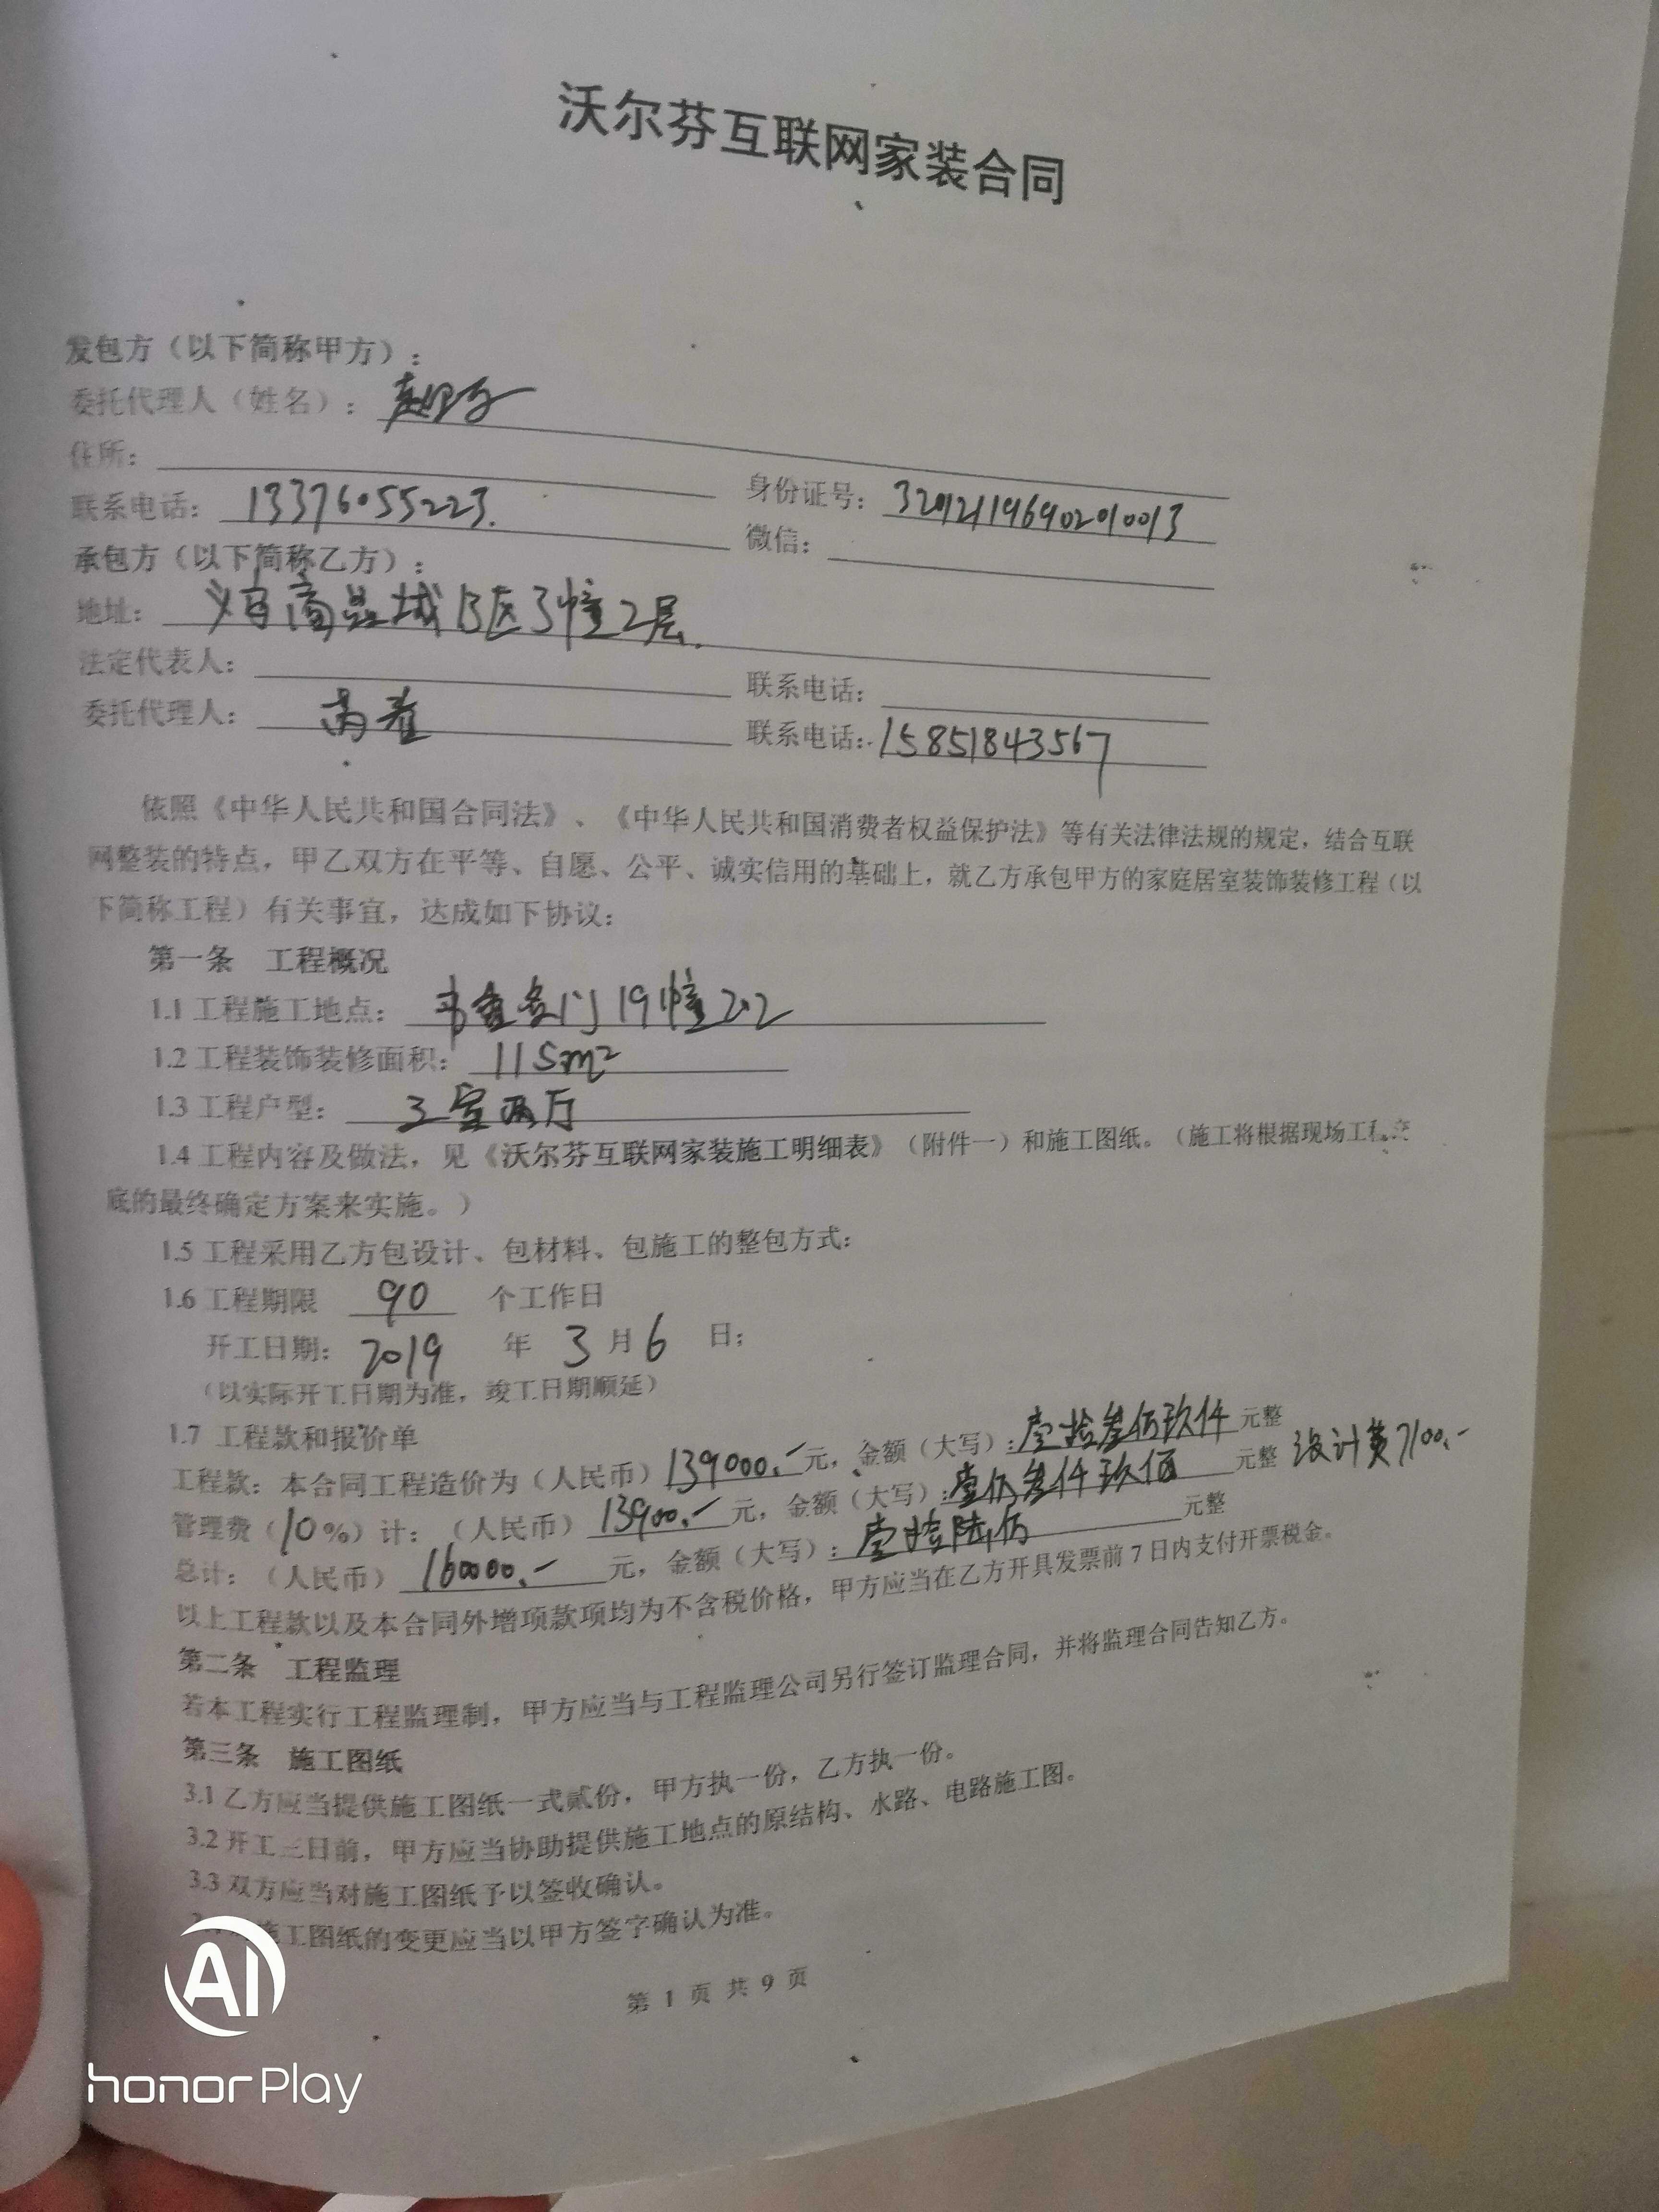 沃尔芬互联网家装合同
发包方（以下简称甲方）：
委托代理人（姓名）：
住所： 身份证号：320121196902010013
联系电话：13376055223. 微信：
承包方（以下简称乙方）：
地址：义乌商品城B区3幢2层.
法定代表人： 联系电话：
委托代理人： 联系电话：15851843567
依照《中华人民共和国合同法》、《中华人民共和国消费者权益保护法》等有关法律法规的规定，结合互联
网整装的特点，甲乙双方在平等、自愿、公平、诚实信用的基础上，就乙方承包甲方的家庭居室装饰装修工程（以
下简称工程）有关事宜，达成如下协议：
第一条 工程概况
1.1 工程施工地点：名门19幢202
1.2 工程装饰装修面积：115m²
1.3 工程户型：三室两厅
1.4 工程内容及做法，见《沃尔芬互联网家装施工明细表》（附件一）和施工图纸。（施工将根据现场工程交
底的最终确定方案来实施。）
1.5 工程采用乙方包设计、包材料、包施工的整包方式：
1.6 工程期限 90 个工作日
开工日期：2019 年 3 月 6 日；
（以实际开工日期为准，竣工日期顺延）
1.7 工程款和报价单
工程款：本合同工程造价为（人民币）139000.- 元，金额（大写）：壹拾叁万玖仟 元整
管理费（10%）计：（人民币）13900.- 元，金额（大写）：壹万叁仟玖佰 元整 设计费7100.-
总计：（人民币）160000.- 元，金额（大写）：壹拾陆万 元整
以上工程款以及本合同外增项款项均为不含税价格，甲方应当在乙方开具发票前 7 日内支付开票税金。
第二条 工程监理
若本工程实行工程监理制，甲方应当与工程监理公司另行签订监理合同，并将监理合同告知乙方。
第三条 施工图纸
3.1 乙方应当提供施工图纸一式贰份，甲方执一份，乙方执一份。
3.2 开工三日前，甲方应当协助提供施工地点的原结构、水路、电路施工图。
3.3 双方应当对施工图纸予以签收确认。
施工图纸的变更应当以甲方签字确认为准。
第 1 页 共 9 页
AI
honor Play